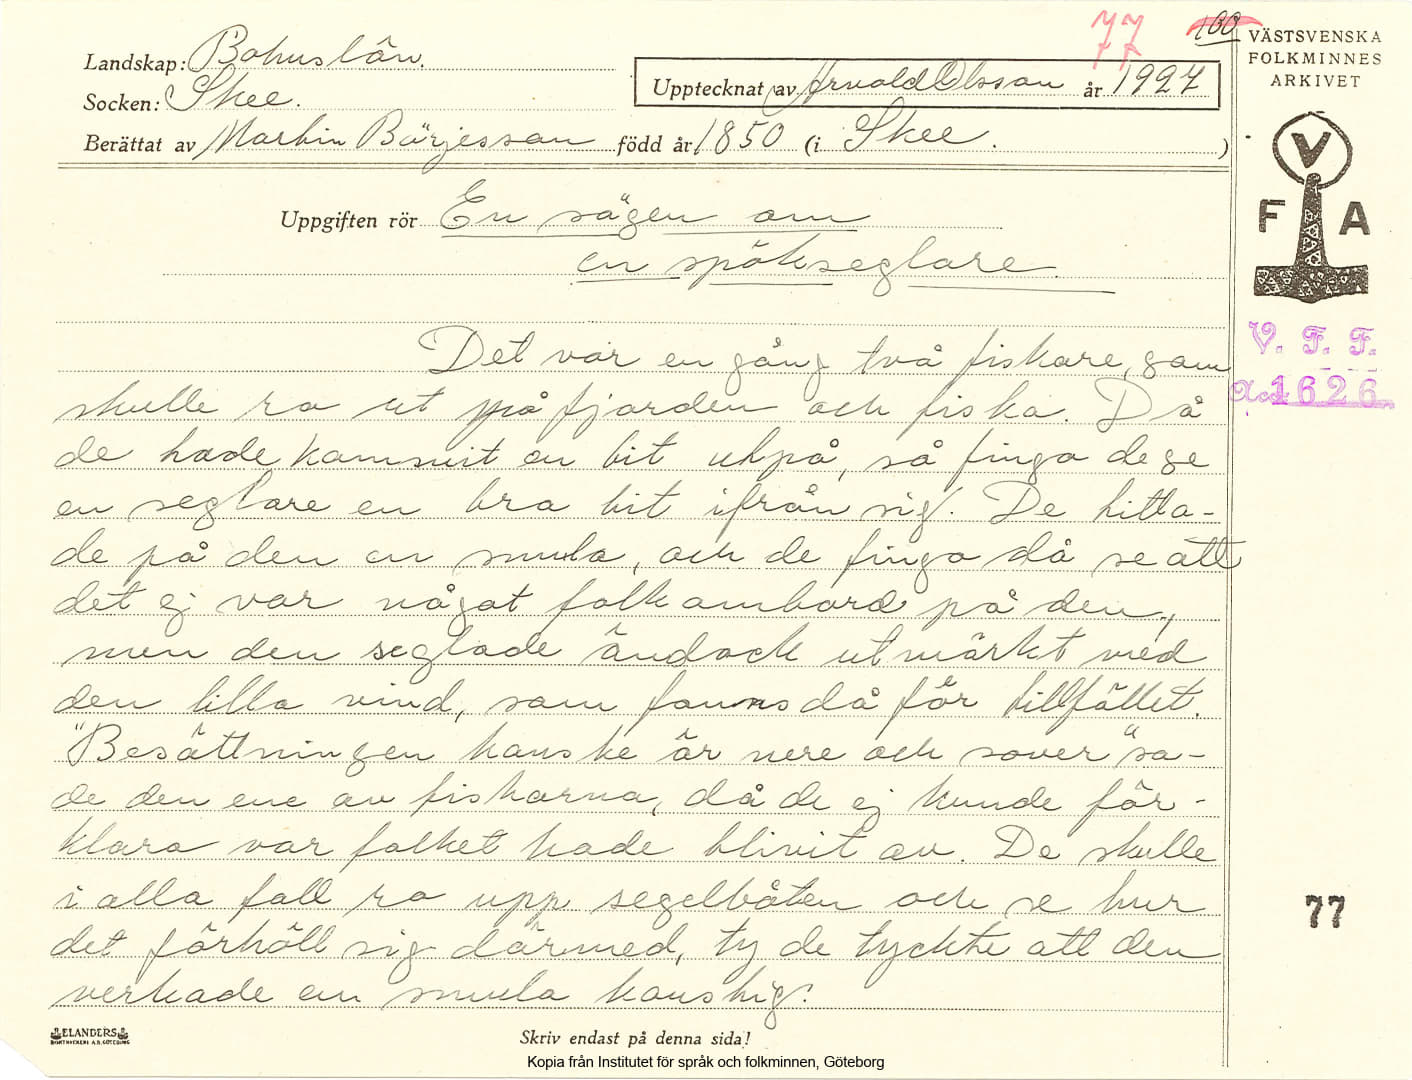 77 100
VÄSTSVENSKA
FOLKMINNES
ARKIVET
Landskap: Bohuslän.
Upptecknat av Arvald Olsson år 1927
Socken: Skee.
Berättat av Martin Börjesson född år 1850 (i Skee. )
V
F A
Uppgiften rör En sägen om
en spökseglare.
V. F. F.
Acc. 1626
Det var en gång två fiskare, som
skulle ro ut på fjorden och fiska. Då
de hade kommit en bit utpå, så fingo de se
en seglare en bra bit ifrån sig. De titta-
de på den en smula, och de fingo då se att
det ej var något folk ombord på den,
men den seglade ändock utmärkt med
den lilla vind, som fanns då för tillfället.
"Besättningen kanske är nere och sover" sa-
de den ene av fiskarna, då de ej kunde för-
klara var folket hade blivit av. De skulle
i alla fall ro upp segelbåten och se hur
det förhöll sig därmed, ty de tyckte att den
verkade en smula konstig.
77
ELANDERS
BOKTRYCKERI A.B. GÖTEBORG
Skriv endast på denna sida!
Kopia från Institutet för språk och folkminnen, Göteborg